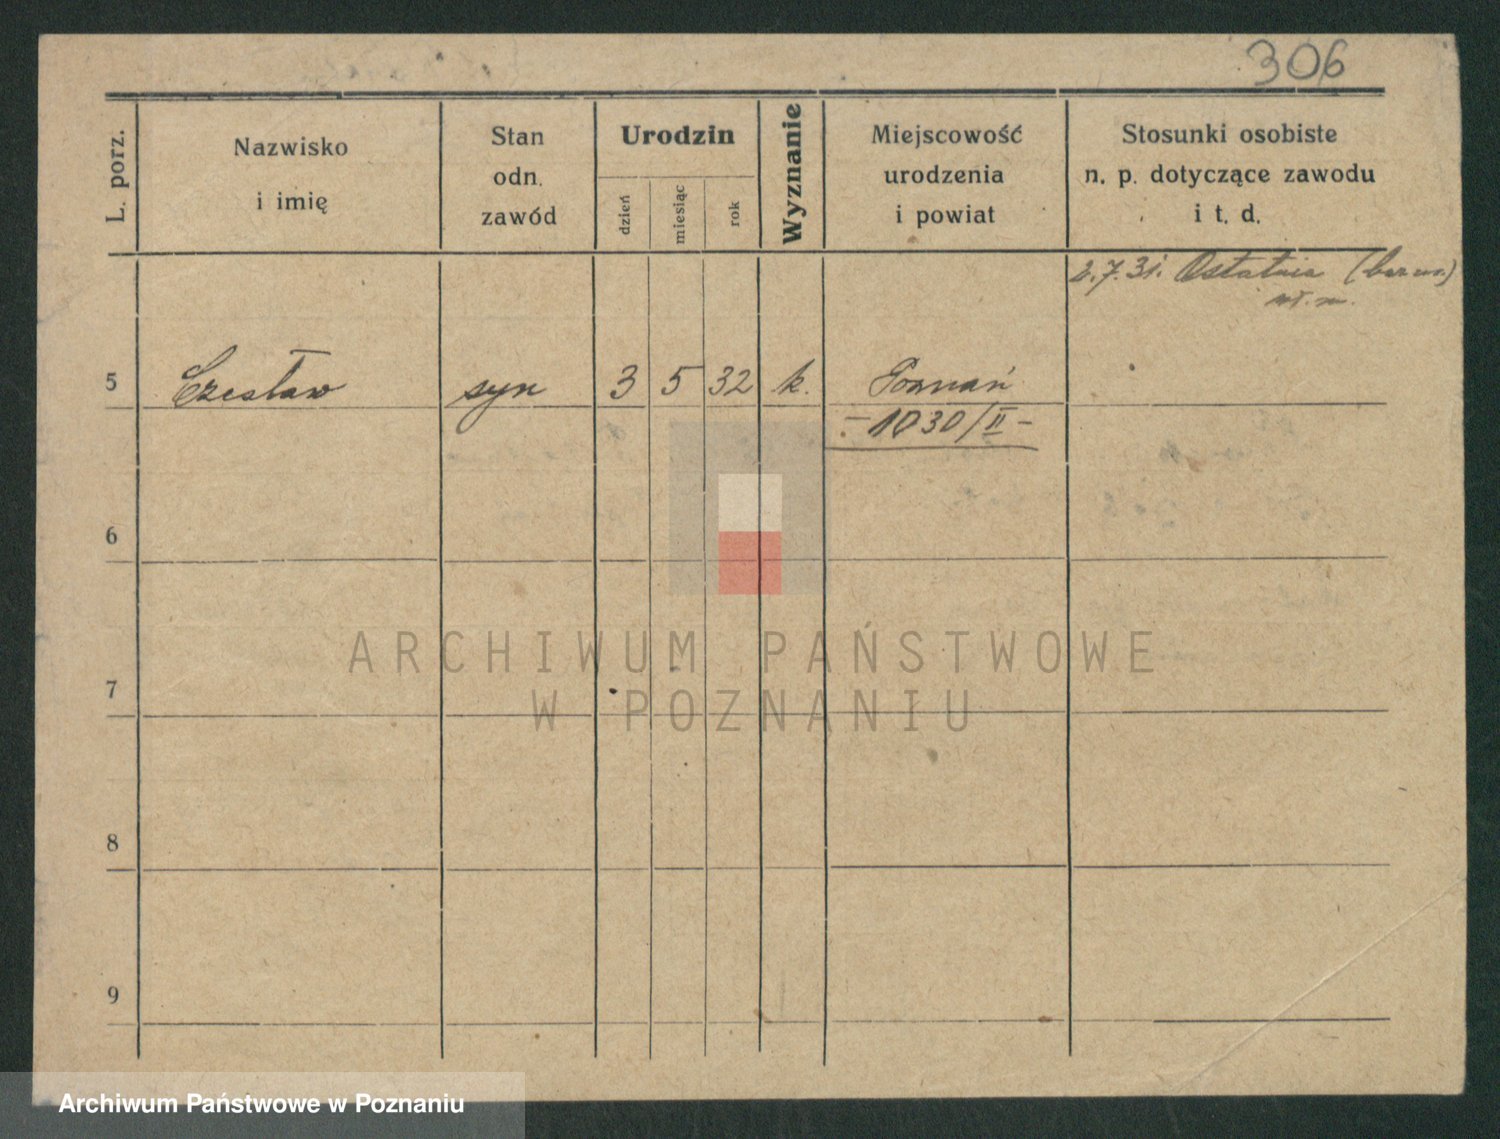 306
L. porz.
Nazwisko
i imię
Stan
odn.
zawód
Urodzin
dzień
miesiąc
rok
Wyznanie
Miejscowość
urodzenia
i powiat
Stosunki osobiste
n. p. dotyczące zawodu
i t. d.
2.7.31. Ostatnia
5 Czesław syn 3 5 32 k. Poznań
- 1030/II -
6
7
8
9
ARCHIWUM PAŃSTWOWE
W POZNANIU
Archiwum Państwowe w Poznaniu